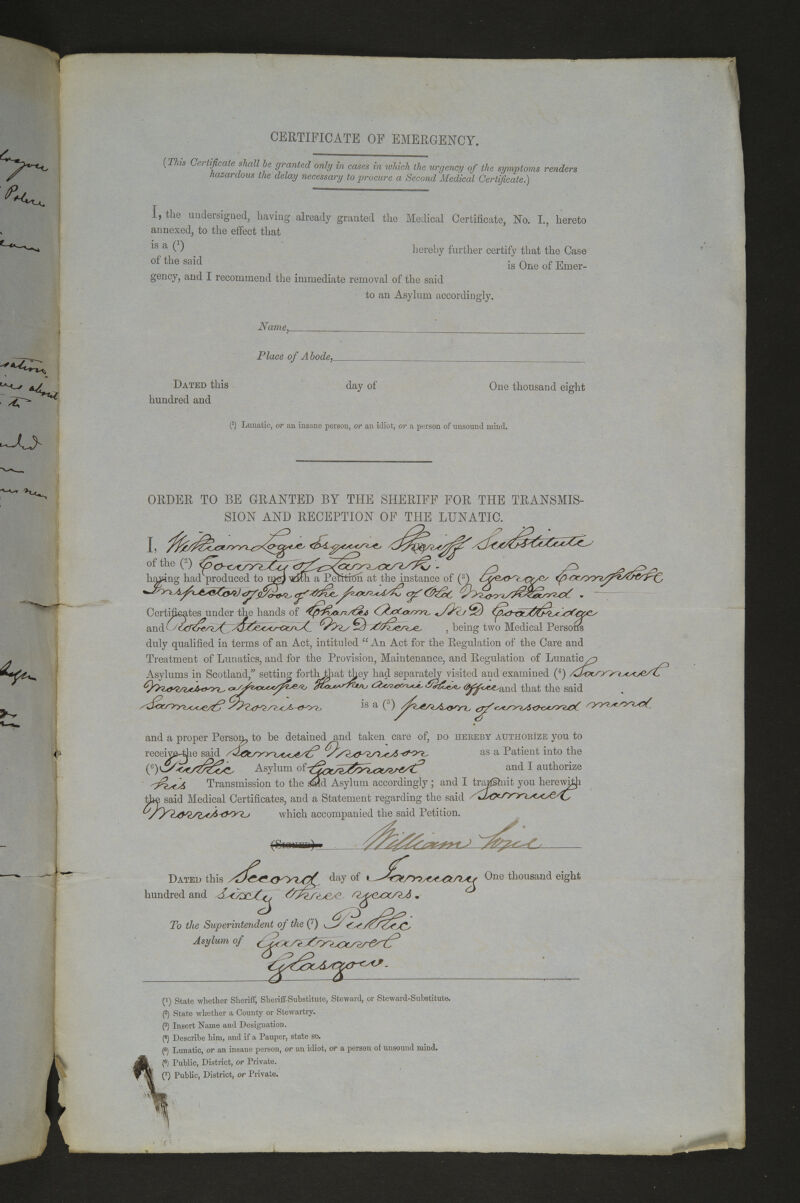 CERTIFICATE OF EMERGENCY.
(This Certificate shall be granted only in cases in which the urgency of the symptoms renders
hazardous the delay necessary to procure a Second Medical Certificate.)
I, the undersigned, having already granted the Medical Certificate, No. I., hereto
annexed, to the effect that
is a (¹) hereby further certify that the Case
of the said is One of Emer-
gency, and I recommend the immediate removal of the said
to an Asylum accordingly.
Name,
Place of Abode,
DATED this day of One thousand eight
hundred and
(¹) Lunatic, or an insane person, or an idiot, or a person of unsound mind.
ORDER TO BE GRANTED BY THE SHERIFF FOR THE TRANSMIS-
SION AND RECEPTION OF THE LUNATIC.
I, William Logie Esquire Sheriff Substitute
of the (²) County of Lanark.
having had produced to me with a Petition at the instance of (³) George Campbell
Inspector of Poor of the parish of Old Monkland.
Certificates under the hands of Charles Adam M D Coatbridge
and Robert Stewart M D there , being two Medical Persons
duly qualified in terms of an Act, intituled "An Act for the Regulation of the Care and
Treatment of Lunatics, and for the Provision, Maintenance, and Regulation of Lunatic
Asylums in Scotland," setting forth that they had separately visited and examined (⁴) Samuel
Morrison a pauper Hawker Airdrie Police Office and that the said
Samuel Morrison is a (⁵) person of unsound mind
and a proper Person, to be detained and taken care of, DO HEREBY AUTHORIZE you to
receive the said Samuel Morrison as a Patient into the
(⁶) Public Asylum of Gartnavel and I authorize
his Transmission to the said Asylum accordingly; and I transmit you herewith
the said Medical Certificates, and a Statement regarding the said Samuel
Morrison which accompanied the said Petition.
(SIGNED) William Logie
DATED this Second day of January One thousand eight
hundred and sixty three years.
To the Superintendent of the (⁷) Public
Asylum of Gartnavel
Glasgow.
(¹) State whether Sheriff, Sheriff-Substitute, Steward, or Steward-Substitute.
(²) State whether a County or Stewartry.
(³) Insert Name and Designation.
(⁴) Describe him, and if a Pauper, state so.
(⁵) Lunatic, or an insane person, or an idiot, or a person of unsound mind.
(⁶) Public, District, or Private.
(⁷) Public, District, or Private.